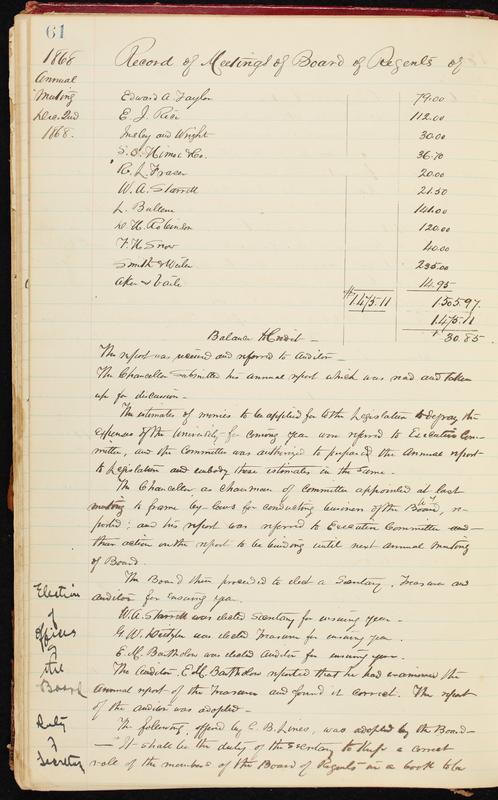 61
1868
Annual
Meeting
Dec. 2nd
1868.
Record of Meetings of Board of Regents of
Edward A. Taylor 79.00
E. J. Rice 112.00
Insley and Wright 30.00
36.70
R. L. Fraser 20.00
W. A. Starrett 21.50
L. Bullene 141.00
D. H. Robinson 120.00
F. H. Snow 40.00
Smith & 235.00
14.95
$1.475.11 1505.97
1.475.11
Balance to Credit — 30.85
The report was received and referred to Auditor —
The Chancellor submitted his annual report which was read and taken
up for discussion —
The estimates of monies to be applied for to the Legislature to defray the
expenses of the University for coming year were referred to Executive Com-
mittee, and the Committee was authorized to prepare the annual report
to Legislature and embody these estimates in the same.
The Chancellor, as Chairman of Committee appointed at last
meeting to frame by-laws for conducting business of the Board, re-
ported; and his report was referred to Executive Committee and
their action on the report to be binding until next annual meeting
of Board.
The Board then proceeded to elect a Secretary, Treasurer and
Auditor for ensuing year.
W. A. Starrett was elected Secretary for ensuing year —
G. W. was elected Treasurer for ensuing year.
E. M. Bartholow was elected Auditor for ensuing year.
The Auditor, E. M. Bartholow reported that he had examined the
annual report of the Treasurer and found it correct. The report
of the auditor was adopted —
The following, offered by C. B. Lines, was adopted by the Board —
— "It shall be the duty of the Secretary to keep a correct
role of the members of the Board of Regents in a book to be
Election
of
Officers
of
the
Board
Duty
of
Secretary